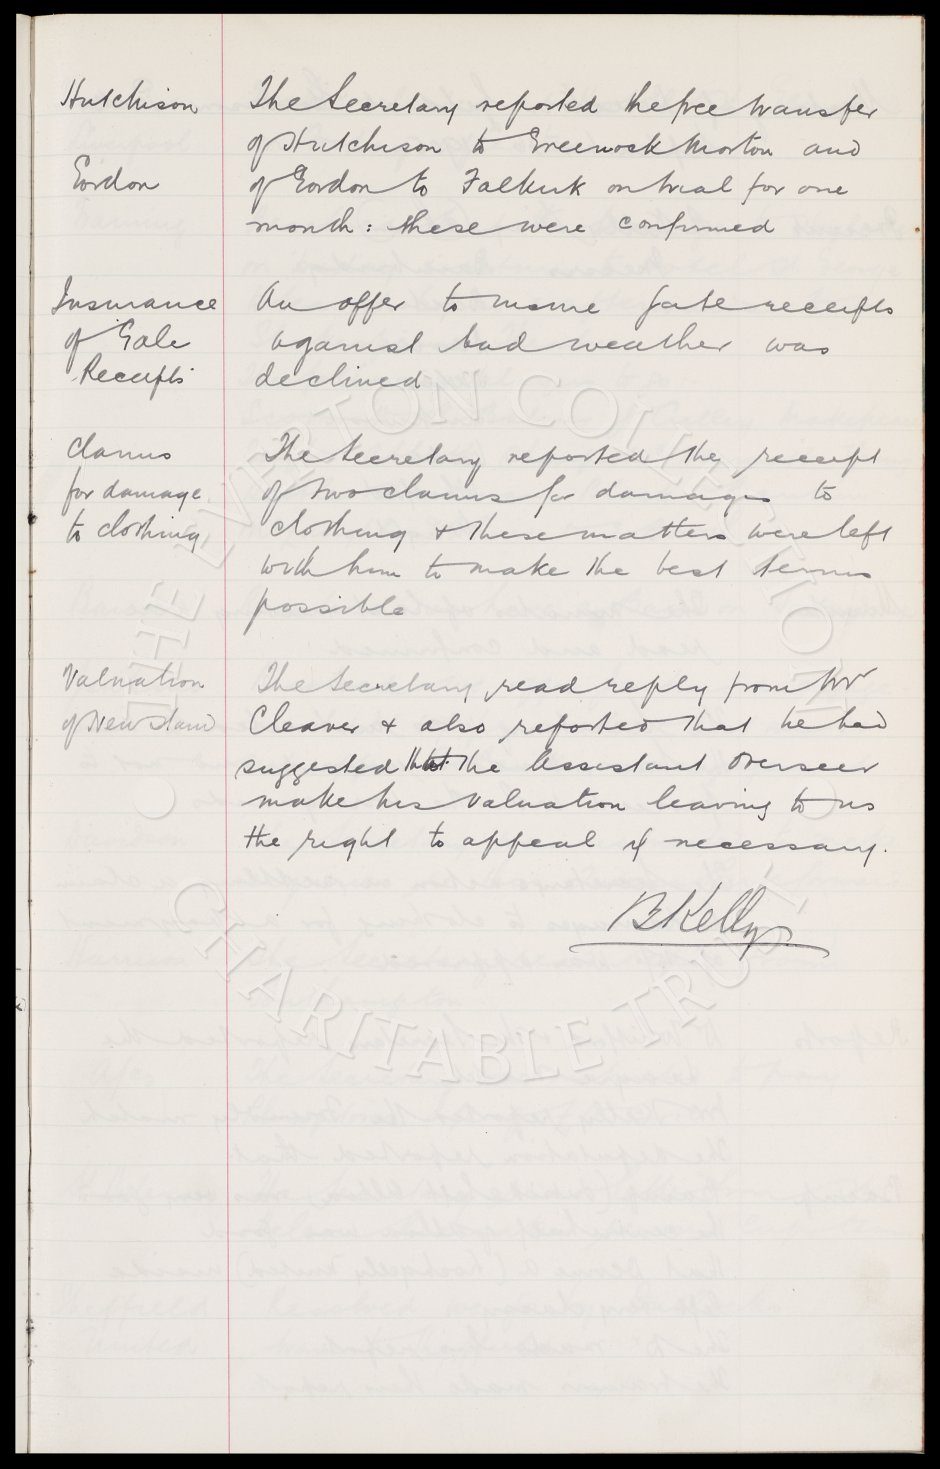 Hutchison The Secretary reported the free transfer
of Hutchison to Greenock Morton and
Gordon of Gordon to Falkirk on trial for one
month: these were confirmed
Insurance An offer to insure gate receipts
of Gate against bad weather was
Receipts declined
Claims The Secretary reported the receipt
for damage of two claims for damages to
to clothing clothing & these matters were left
with him to make the best terms
possible
Valuation The Secretary read reply from Mr
of New Stand Cleaver & also reported that he had
suggested that the Assistant Overseer
make his valuation leaving to us
the right to appeal if necessary.
B Kelly
THE EVERTON COLLECTION
CHARITABLE TRUST